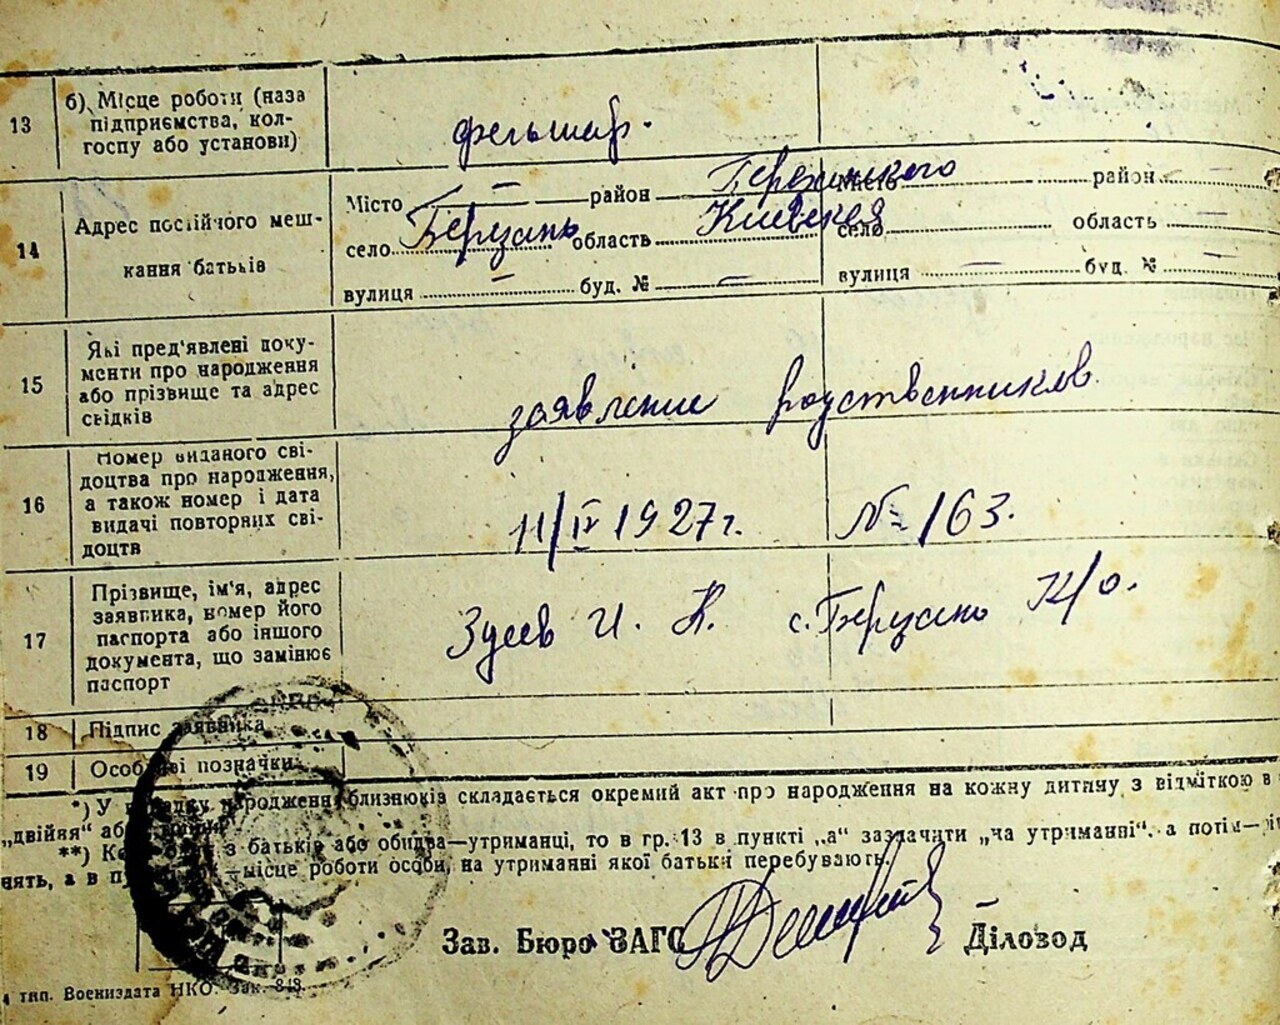 13
б) Місце роботи (наза
підприємства, кол-
госпу або установи)
фельшар.
14
Адрес постійного меш-
кання батьків
Місто — район Бережанского
село Берзань область Киевская
вулиця — буд. № —
Місто район —
село область —
вулиця — буд. № —
15
Які пред'явлені доку-
менти про народження
або прізвище та адрес
свідків
заявление родственников.
16
Номер виданого сві-
доцтва про народження,
а також номер і дата
видачі повторних сві-
доцтв
11/IV 1927 г. № 163.
17
Прізвище, ім'я, адрес
заявника, номер його
паспорта або іншого
документа, що замінює
паспорт
Зуев И. К. с. Берзань К/о.
18
Підпис заявника
19
Особливі позначки
*) У випадку народження близнюків складається окремий акт про народження на кожну дитину з відміткою в
„двійня“ або
**) Коли один з батьків або обидва—утриманці, то в гр. 13 в пункті „а“ зазначати „на утриманні“, а потім—
нять, а в місце роботи особи, на утриманні якої батьки перебувають.
Зав. Бюро ЗАГС
Діловод
4 тип. Воениздата НКО. Зак. 843.